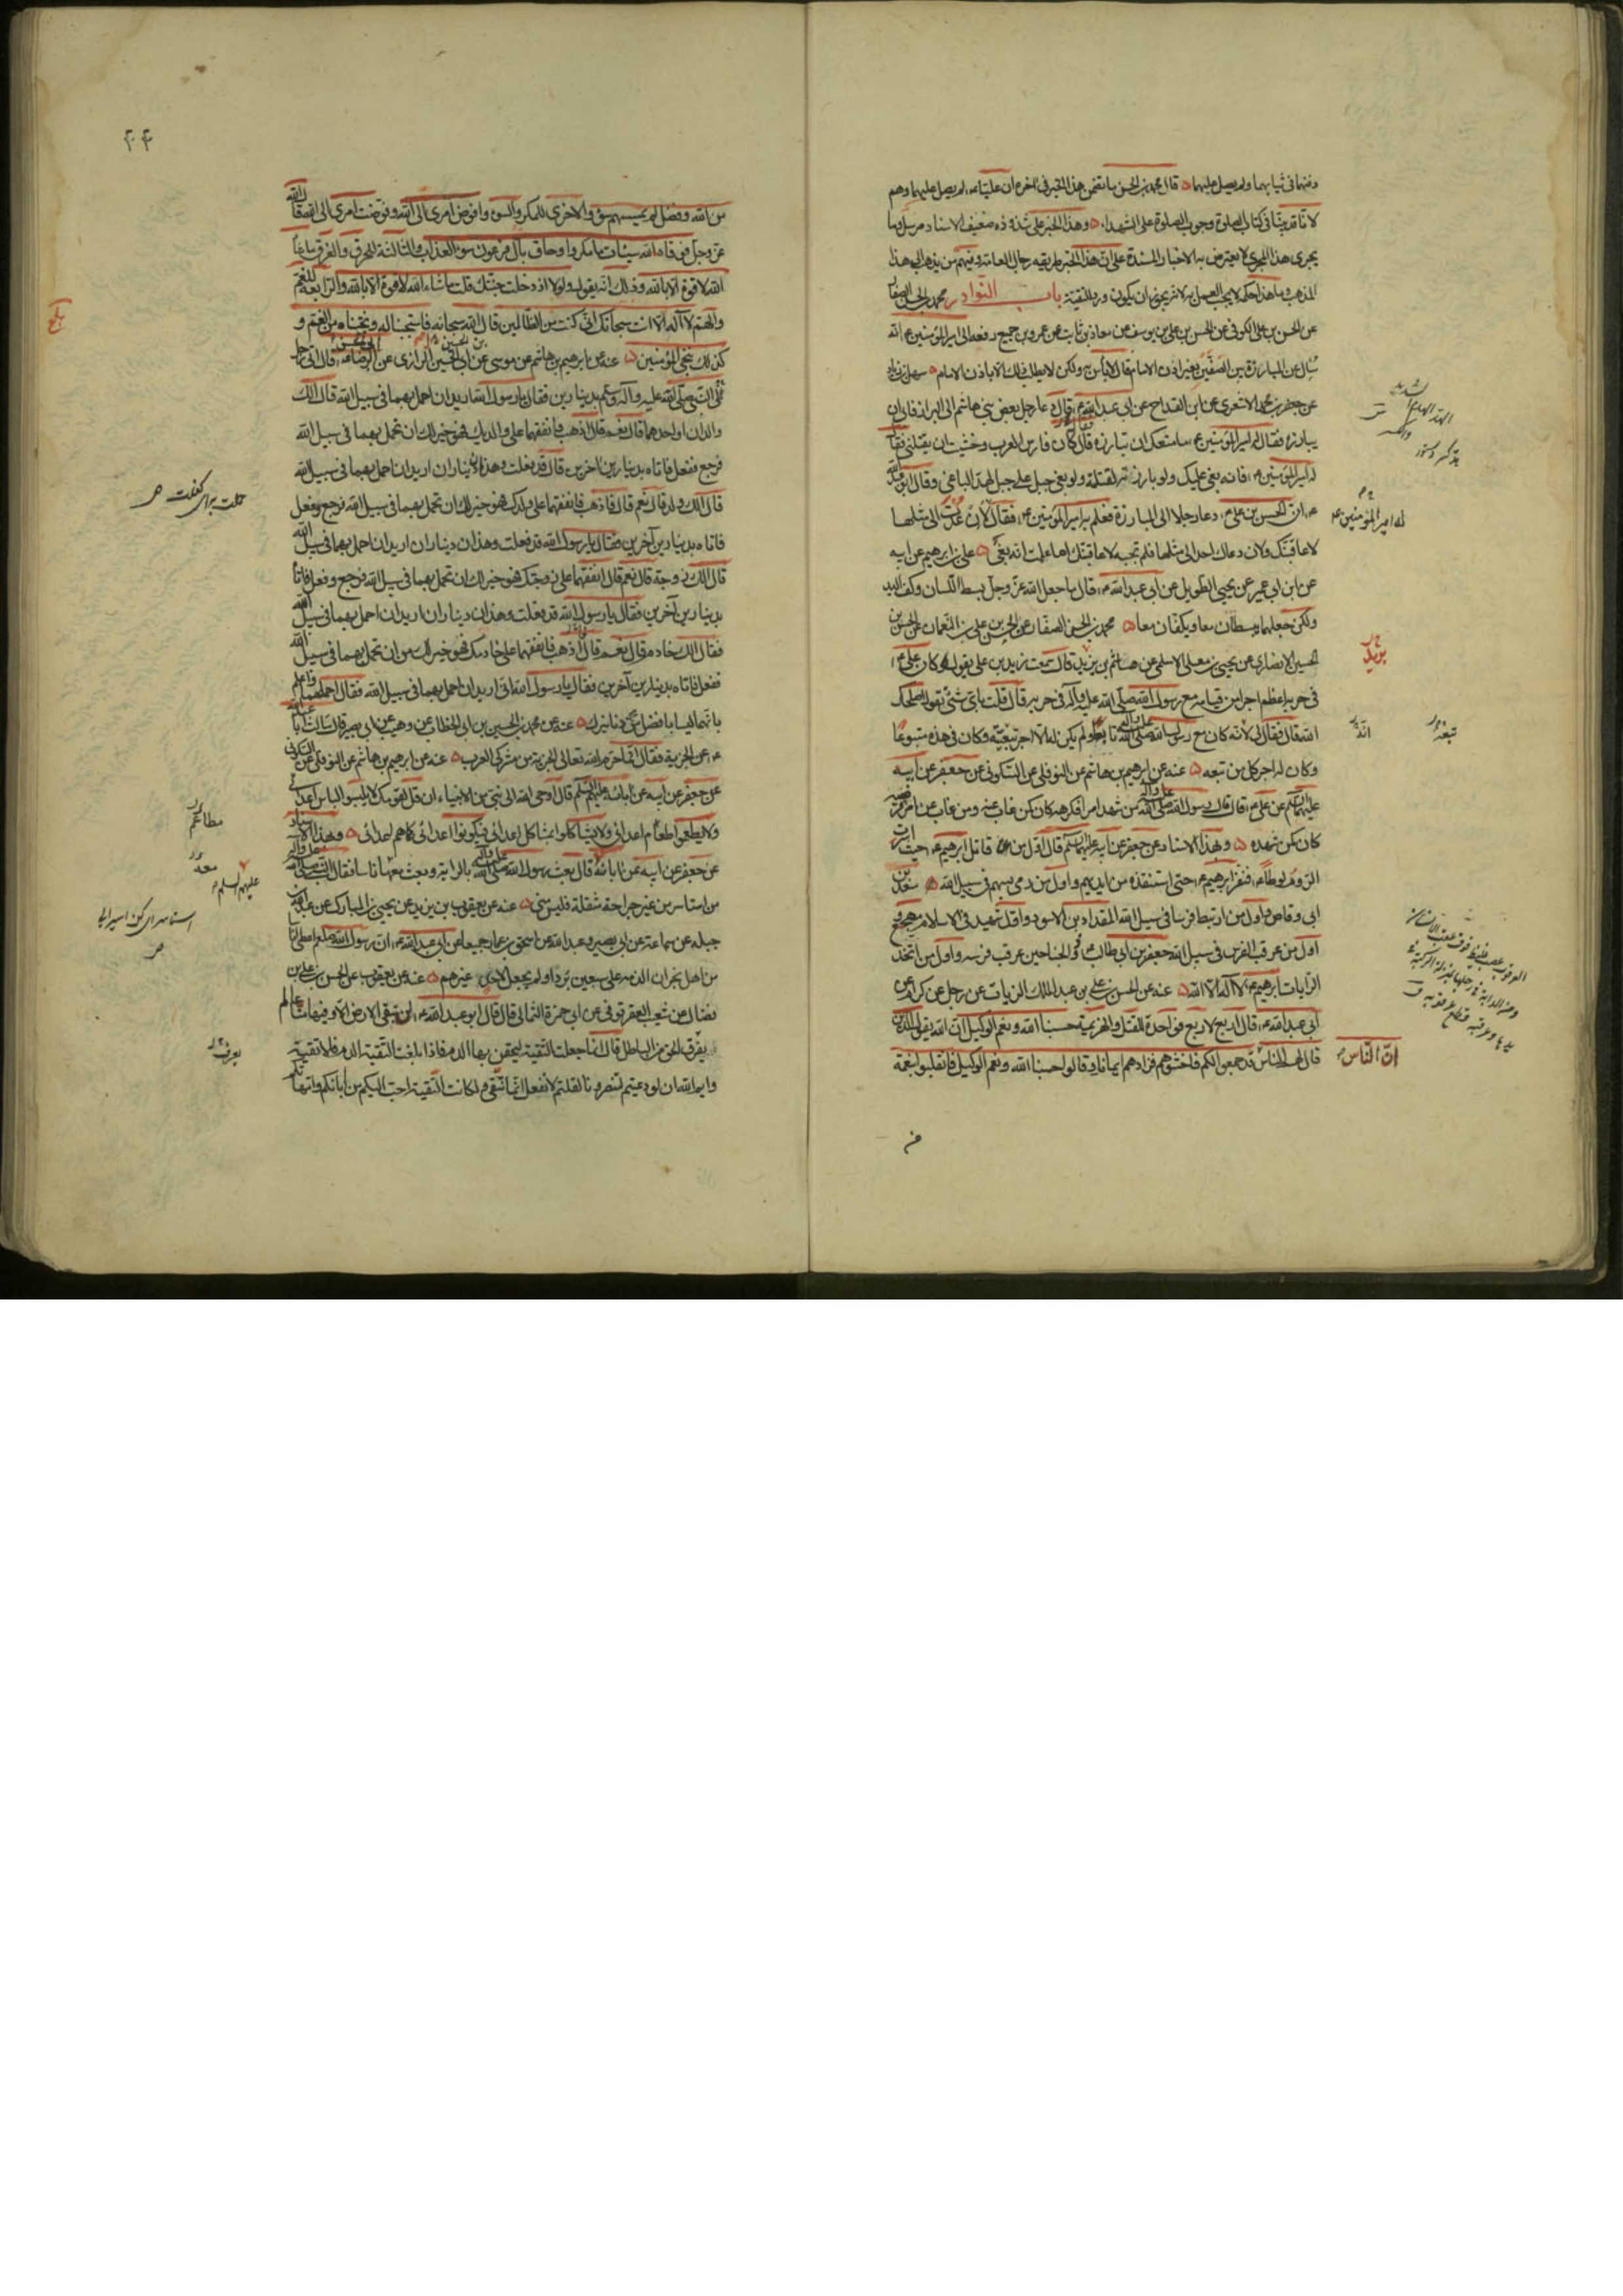 دفنهما في ثيابهما ولم يصل عليهما قال محمد بن الحسن ما تضمن هذا الخبر في آخره ان عليا ع لم يصل عليهما وهم
لانا قد بينا في كتاب الصلوة وجوب الصلوة على الشهداء وهذا الخبر على شذوذه ضعيف الاسناد مرسل وما
يجرى هذا المجرى لا يعترض به الاخبار المسندة على ان هذا الخبر طريقه رجال العامة وفيهم من يذهب الى هذا
المذهب وما هذا حكمه لا يجب العمل به لانه يجوز ان يكون ورد للتقية باب النوادر محمد بن الحسن الصفار
عن الحسن بن علي الكوفي عن الحسن بن علي بن يوسف عن معاذ بن ثابت عن عمرو بن جميع رفعه الى امير المؤمنين ع انه
سئل عن المبارزة بين الصفين بغير اذن الامام قال لا بأس به ولكن لا يطلب ذلك الا باذن الامام سهل بن زياد
عن جعفر بن محمد الاشعري عن ابن القداح عن ابي عبد الله ع قال دعا رجل بعض بني هاشم الى البراز فابى ان
يبارزه فقال له امير المؤمنين ع ما منعك ان تبارزه قال كان فارس العرب وخشيت ان يقتلني فقال
له امير المؤمنين ع فانه بغى عليك ولو بارزته لقتلته ولو بغى جبل على جبل لهد الباغي وقال ابو عبد الله
ع ان الحسن بن علي ع دعا رجلا الى المبارزة فعلم به امير المؤمنين ع فقال لان عدت الى مثلها
لاعاقبنك ولان دعاك احد الى مثلها فلم تجبه لاعاقبنك اما علمت انه بغى علي بن ابرهيم عن ابيه
عن ابن ابي عمير عن يحيى الطويل عن ابي عبد الله ع قال ما جعل الله عز وجل بسط اللسان وكف اليد
ولكن جعلهما يبسطان معا ويكفان معا محمد بن الحسن الصفار عن الحسن بن علي بن النعمان عن الحسن بن
الحسين الانصاري عن يحيى بن معلى الاسلمي عن هاشم بن يزيد قال سمعت زيد بن علي يقول كان علي ع
في حربه اعظم اجرا من قيامه مع رسول الله صلى الله عليه وآله في حربه قال قلت باي شئ تقول اصلحك
الله قال فقال لي لانه كان مع رسول الله صلى الله عليه وآله تابعا ولم يكن له الا اجر تبعيته وكان في هذه متبوعا
وكان له اجر كل من تبعه عنه عن ابرهيم بن هاشم عن النوفلي عن السكوني عن جعفر عن ابيه
عليهما السلام عن علي ع قال قال رسول الله صلى الله عليه وآله من شهد امرا فكرهه كان كمن غاب عنه ومن غاب عن امر فرضيه
كان كمن شهده وبهذا الاسناد عن جعفر عن ابيه عليهما السلام قال اول من قاتل ابرهيم ع حيث اسرت
الروم لوطا ع فنفر ابرهيم ع حتى استنقذه من ايديهم واول من رمى بسهم في سبيل الله سعد بن
ابي وقاص واول من ارتبط فرسا في سبيل الله المقداد بن الاسود واول شهيد في الاسلام مهجع
واول من عرقب الفرس في سبيل الله جعفر بن ابي طالب ذو الجناحين عرقب فرسه واول من اتخذ
الرايات ابرهيم ع لا اله الا الله عنه عن الحسن بن علي بن عبد الملك الزيات عن رجل عن كرام عن
ابي عبد الله ع قال اربع لاربع فواحدة للقتل والهزيمة حسبنا الله ونعم الوكيل ان الله يقول الذين
قال لهم الناس قد جمعوا لكم فاخشوهم فزادهم ايمانا وقالوا حسبنا الله ونعم الوكيل فانقلبوا بنعمة
له امير المؤمنين ع
يزيد
تبعه
انه
ان الناس
من الله وفضل لم يمسسهم سوء والاخرى للمكر والسوء وافوض امرى الى الله وفوضت امرى الى الله قال الله
عز وجل فوقاه الله سيئات ما مكروا وحاق بآل فرعون سوء العذاب والثالثة للحرق والغرق ما شاء
الله لا قوة الا بالله وذلك انه يقول ولولا اذ دخلت جنتك قلت ما شاء الله لا قوة الا بالله والرابعة للغم
والهم لا اله الا انت سبحانك اني كنت من الظالمين قال الله سبحانه فاستجبنا له ونجيناه من الغم و
كذلك ننجي المؤمنين عنه عن ابرهيم بن هاشم عن موسى عن ابي الحسين الرازي عن ابي الحسن الرضا ع قال اتى رجل
الى النبي صلى الله عليه وآله وسلم بدينارين فقال يا رسول الله اريد ان احمل بهما في سبيل الله قال الك
والدان او احدهما قال نعم قال اذهب فانفقهما على والديك فهو خير لك ان تحمل بهما في سبيل الله
فرجع ففعل فاتاه بدينارين آخرين قال قد فعلت وهذان ديناران اريد ان احمل بهما في سبيل الله
قال الك ولد قال نعم قال فاذهب فانفقهما على ولدك فهو خير لك ان تحمل بهما في سبيل الله فرجع وفعل
فاتاه بدينارين آخرين فقال يا رسول الله قد فعلت وهذان ديناران اريد ان احمل بهما في سبيل الله
قال الك زوجة قال نعم قال انفقهما على زوجتك فهو خير لك ان تحمل بهما في سبيل الله فرجع وفعل فاتاه
بدينارين آخرين فقال يا رسول الله قد فعلت وهذان ديناران اريد ان احمل بهما في سبيل الله
فقال الك خادم قال نعم قال اذهب فانفقهما على خادمك فهو خير لك من ان تحمل بهما في سبيل الله
ففعل فاتاه بدينارين آخرين فقال يا رسول الله اني اريد ان احمل بهما في سبيل الله فقال احملهما واعلم
بانهما ليسا بافضل من دنانيرك عنه عن محمد بن الحسين بن ابي الخطاب عن وهيب عن ابي بصير قال سالت ابا عبد الله
ع عن الجزية فقال انما حرم الله تعالى الجزية من مشركي العرب عنه عن ابرهيم بن هاشم عن النوفلي عن السكوني
عن جعفر عن ابيه عن آبائه عليهم السلام قال اوحى الله الى نبي من الانبياء ان قل لقومك لا يلبسوا لباس اعدائي
ولا يطعموا طعام اعدائي ولا يشاكلوا بمشاكل اعدائي فيكونوا اعدائي كما هم اعدائي وبهذا الاسناد
عن جعفر عن ابيه عن آبائه قال بعث رسول الله صلى الله عليه وآله بالراية وبعث معها ناسا فقال النبي صلى الله عليه وآله
من استاسر من غير جراحة مثقلة فليس مني عنه عن يعقوب بن يزيد عن يحيى بن المبارك عن عبد الله بن
جبلة عن سماعة عن ابي بصير وعبد الله عن اسحق بن عمار جميعا عن ابي عبد الله ع ان رسول الله صلعم اعطى اناسا
من اهل نجران الذمة على سبعين بردا ولم يجعل لاحد غيرهم عنه عن يعقوب عن الحسن بن علي بن
فضال عن شعيب العقرقوفي عن ابي حمزة الثمالي قال قال ابو عبد الله ع لن تبقى الارض الا وفيها منا عالم
يعرف الحق من الباطل قال انما جعلت التقية ليحقن بها الدم فاذا بلغت التقية الدم فلا تقية
وايم الله ان لو دعيتم لتنصرونا لقلتم لا نفعل انما نتقي ولكانت التقية احب اليكم من آبائكم وامهاتكم
مطاعم
معه
عليهم السلم
يعرف